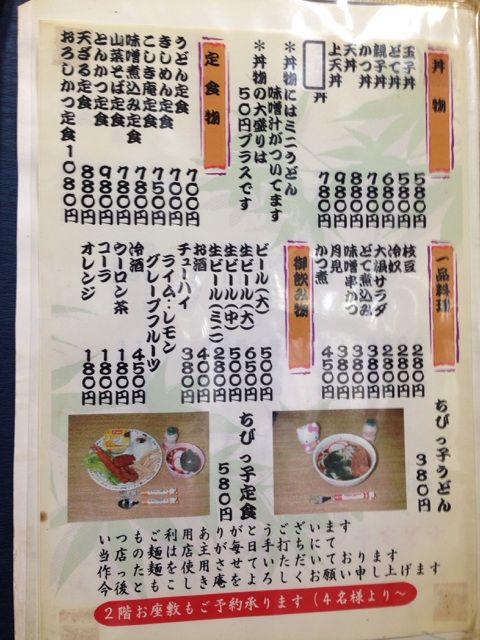 丼物
玉子丼 580円
どて丼 580円
親子丼 680円
かつ丼 780円
天丼 880円
上天丼 980円
丼 780円
＊丼物にはミニうどん
味噌汁がついてます
＊丼物の大盛りは
50円プラスです
定食物
うどん定食 700円
きしめん定食 700円
こしき庵定食 750円
味噌煮込み定食 780円
山菜そば定食 780円
とんかつ定食 980円
天ざる定食 880円
おろしかつ定食 1080円
一品料理
枝豆 280円
冷奴 280円
大根サラダ 280円
どて煮込み 380円
味噌串かつ 380円
月見 380円
かつ煮 450円
御飲み物
ビール(大) 500円
生ビール(大) 650円
生ビール(中) 500円
生ビール(ミニ) 280円
お酒 400円
チューハイ 380円
ライム・レモン
グレープフルーツ
冷酒 450円
ウーロン茶 180円
コーラ 180円
オレンジ 180円
ちびっ子うどん
380円
ちびっ子定食
580円
いつもご利用ありがとうございます
当店の麺は店主が毎日手打ちにて
作った麺を使用させていただいております
今後ともこしき庵をよろしくお願い申し上げます
2階お座敷もご予約承ります(4名様より～